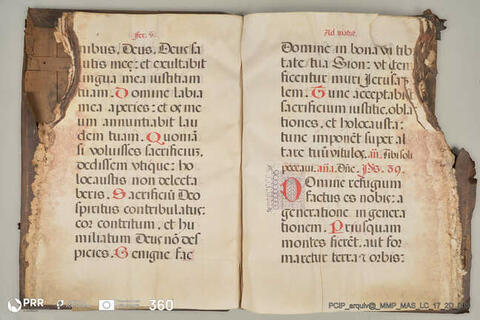 fer. 5.
nibus, Deus, Deus sa
utis mee: et exultabit
lingua mea iustitiam
tuam. Domine labia
mea aperies: et os me
um annuntiabit lau
dem tuam. Quoniã
si voluisses sacrificiũ,
dedissem vtique: ho
locaustis non delecta
beris. Sacrificiũ Deo
spiritus contribulatus:
cor contritum, et hu
miliatum Deus nõ des
picies. Benigne fac
Ad matut.
Domine in bona volũ
tate tua Sion: vt edi
ficentur muri Jerusa
lem. Tunc acceptabis
sacrificium iustitie, obla
tiones, et holocausta:
tunc imponẽt super al
tare tuũ vitulos. añ. Tibi soli
peccaui. aña. Dñe. Ps. 39.
Domine refugium
factus es nobis: a
generatione in genera
tionem. Priusquam
montes fierẽt, aut for
maretur terra et orbis:
PRR
360
PCIP_arquiv@_MMP_MAS_LC_17_20